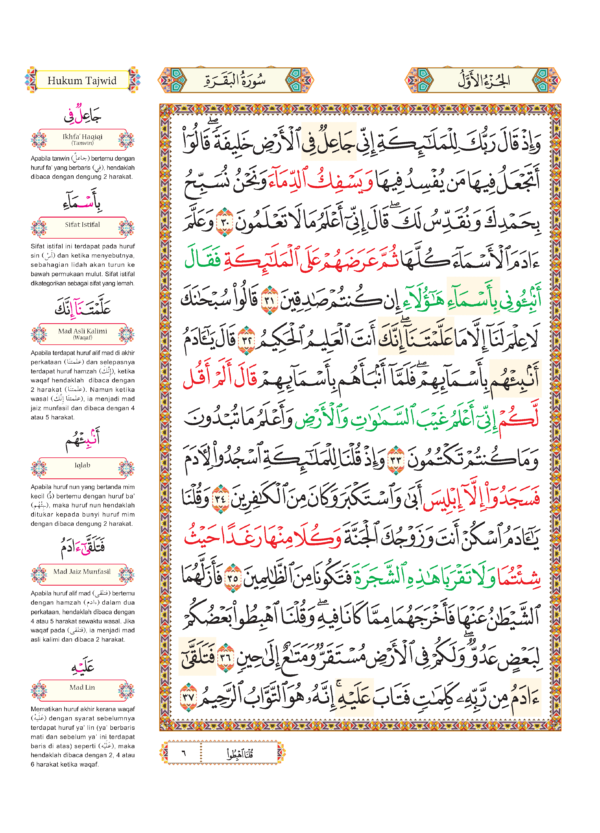 Hukum Tajwid
سُورَةُ البَقَرَةِ
الجُزْءُ الأَوَّلُ
جَاعِلٌ فِى
Ikhfa' Haqiqi
(Tanwin)
Apabila tanwin (جَاعِلٌ) bertemu dengan
huruf fa' yang berbaris (فِى), hendaklah
dibaca dengan dengung 2 harakat.
بِأَسْمَآءِ
Sifat Istifal
Sifat istifal ini terdapat pada huruf
sin (أَسْ) dan ketika menyebutnya,
sebahagian lidah akan turun ke
bawah permukaan mulut. Sifat istifal
dikategorikan sebagai sifat yang lemah.
عَلَّمْتَنَآ إِنَّكَ
Mad Asli Kalimi
(Waqaf)
Apabila terdapat huruf alif mad di akhir
perkataan (عَلَّمْتَنَا) dan selepasnya
terdapat huruf hamzah (إِنَّكَ), ketika
waqaf hendaklah dibaca dengan
2 harakat (عَلَّمْتَنَا). Namun ketika
wasal (عَلَّمْتَنَآ إِنَّكَ), ia menjadi mad
jaiz munfasil dan dibaca dengan 4
atau 5 harakat.
أَنۢبِئْهُم
Iqlab
Apabila huruf nun yang bertanda mim
kecil (نۢ) bertemu dengan huruf ba'
(بِئْهُم), maka huruf nun hendaklah
ditukar kepada bunyi huruf mim
dengan dibaca dengung 2 harakat.
فَتَلَقَّىٰٓ ءَادَمُ
Mad Jaiz Munfasil
Apabila huruf alif mad (فَتَلَقَّىٰ) bertemu
dengan hamzah (ءَادَمُ) dalam dua
perkataan, hendaklah dibaca dengan
4 atau 5 harakat sewaktu wasal. Jika
waqaf pada (فَتَلَقَّىٰ), ia menjadi mad
asli kalimi dan dibaca 2 harakat.
عَلَيْهِ
Mad Lin
Mematikan huruf akhir kerana waqaf
(عَلَيْهْ) dengan syarat sebelumnya
terdapat huruf ya' lin (ya' berbaris
mati dan sebelum ya' ini terdapat
baris di atas) seperti (عَلَيْهِ), maka
hendaklah dibaca dengan 2, 4 atau
6 harakat ketika waqaf.
وَإِذْ قَالَ رَبُّكَ لِلْمَلَٰٓئِكَةِ إِنِّى جَاعِلٌ فِى ٱلْأَرْضِ خَلِيفَةً ۖ قَالُوٓا۟
أَتَجْعَلُ فِيهَا مَن يُفْسِدُ فِيهَا وَيَسْفِكُ ٱلدِّمَآءَ وَنَحْنُ نُسَبِّحُ
بِحَمْدِكَ وَنُقَدِّسُ لَكَ ۖ قَالَ إِنِّىٓ أَعْلَمُ مَا لَا تَعْلَمُونَ ٣٠ وَعَلَّمَ
ءَادَمَ ٱلْأَسْمَآءَ كُلَّهَا ثُمَّ عَرَضَهُمْ عَلَى ٱلْمَلَٰٓئِكَةِ فَقَالَ
أَنۢبِـُٔونِى بِأَسْمَآءِ هَٰٓؤُلَآءِ إِن كُنتُمْ صَٰدِقِينَ ٣١ قَالُوا۟ سُبْحَٰنَكَ
لَا عِلْمَ لَنَآ إِلَّا مَا عَلَّمْتَنَآ ۖ إِنَّكَ أَنتَ ٱلْعَلِيمُ ٱلْحَكِيمُ ٣٢ قَالَ يَٰٓـَٔادَمُ
أَنۢبِئْهُم بِأَسْمَآئِهِمْ ۖ فَلَمَّآ أَنۢبَأَهُم بِأَسْمَآئِهِمْ قَالَ أَلَمْ أَقُل
لَّكُمْ إِنِّىٓ أَعْلَمُ غَيْبَ ٱلسَّمَٰوَٰتِ وَٱلْأَرْضِ وَأَعْلَمُ مَا تُبْدُونَ
وَمَا كُنتُمْ تَكْتُمُونَ ٣٣ وَإِذْ قُلْنَا لِلْمَلَٰٓئِكَةِ ٱسْجُدُوا۟ لِـَٔادَمَ
فَسَجَدُوٓا۟ إِلَّآ إِبْلِيسَ أَبَىٰ وَٱسْتَكْبَرَ وَكَانَ مِنَ ٱلْكَٰفِرِينَ ٣٤ وَقُلْنَا
يَٰٓـَٔادَمُ ٱسْكُنْ أَنتَ وَزَوْجُكَ ٱلْجَنَّةَ وَكُلَا مِنْهَا رَغَدًا حَيْثُ
شِئْتُمَا وَلَا تَقْرَبَا هَٰذِهِ ٱلشَّجَرَةَ فَتَكُونَا مِنَ ٱلظَّٰلِمِينَ ٣٥ فَأَزَلَّهُمَا
ٱلشَّيْطَٰنُ عَنْهَا فَأَخْرَجَهُمَا مِمَّا كَانَا فِيهِ ۖ وَقُلْنَا ٱهْبِطُوا۟ بَعْضُكُمْ
لِبَعْضٍ عَدُوٌّ ۖ وَلَكُمْ فِى ٱلْأَرْضِ مُسْتَقَرٌّ وَمَتَٰعٌ إِلَىٰ حِينٍ ٣٦ فَتَلَقَّىٰٓ
ءَادَمُ مِن رَّبِّهِۦ كَلِمَٰتٍ فَتَابَ عَلَيْهِ ۚ إِنَّهُۥ هُوَ ٱلتَّوَّابُ ٱلرَّحِيمُ ٣٧
٦
قُلْنَا ٱهْبِطُوا۟